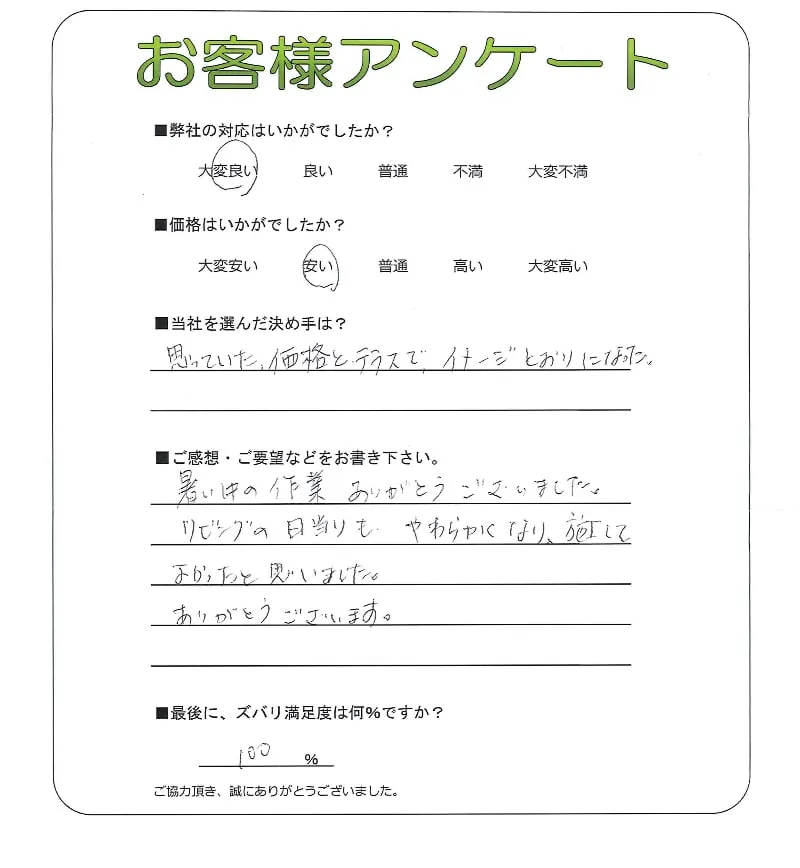 お客様アンケート
■弊社の対応はいかがでしたか？
大変良い 良い 普通 不満 大変不満
■価格はいかがでしたか？
大変安い 安い 普通 高い 大変高い
■当社を選んだ決め手は？
思っていた、価格と、テラスで、イメージどおりになった。
■ご感想・ご要望などをお書き下さい。
暑い中の作業 ありがとうございました。
リビングの日当りも やわらかくなり、施工して
よかったと思いました。
ありがとうございます。
■最後に、ズバリ満足度は何％ですか？
100 ％
ご協力頂き、誠にありがとうございました。